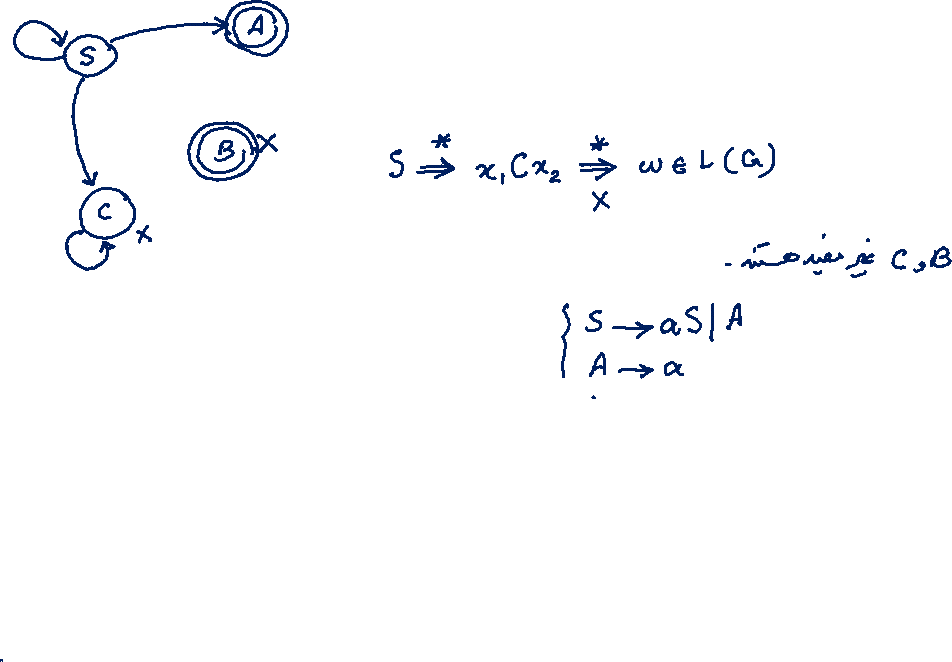 S
A
B x
C
x
S *⇒ x₁Cx₂ *⇒ w ∈ L(G)
x
B و C غیر مفید هستند .
{ S → aS | A
A → a